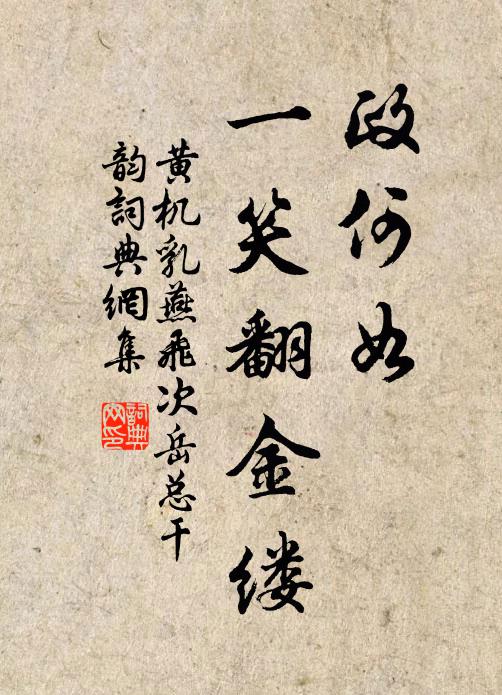 政何如
一笑翻金缕
黄机乳燕飞次岳总干
韵詞典網集
詞典
网印